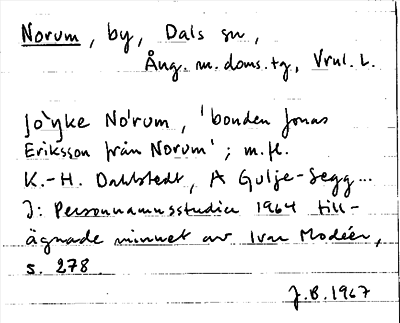 Norum, by, Dals sn,
Ång. m. doms. tg, Vnl. L.
Jo`ŋke No´rum, 'bonden Jonas
Eriksson från Norum'; m.fl.
K.-H. Dahlstedt, A Gulje-Segg...
I: Personnamnsstudier 1964 till-
ägnade minnet av Ivar Modéer,
s. 278.
J.B. 1967